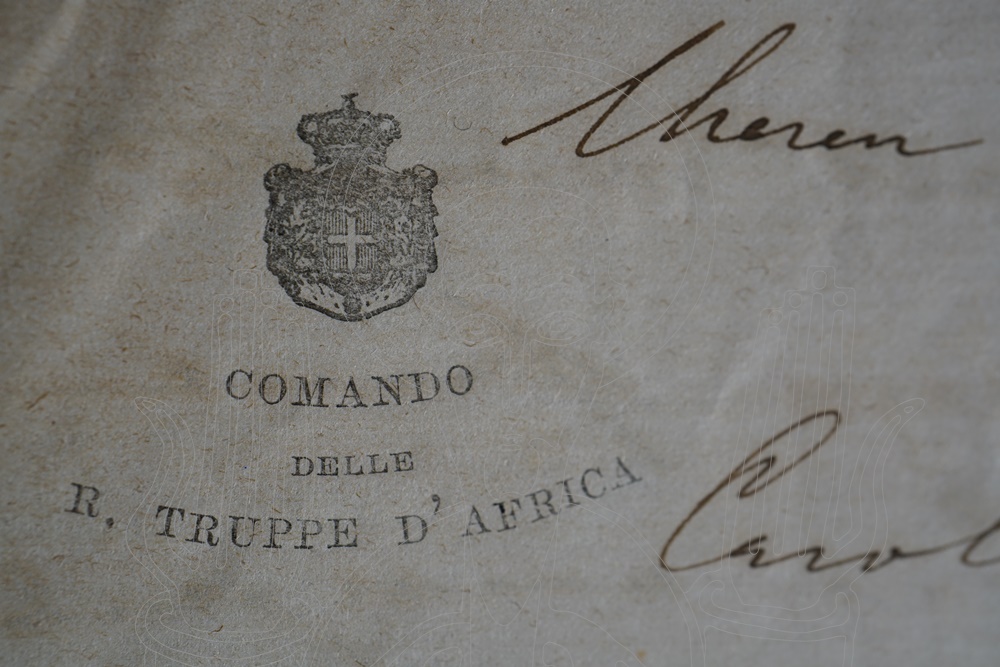 Cheren
COMANDO
DELLE
R. TRUPPE D' AFRICA
Caro